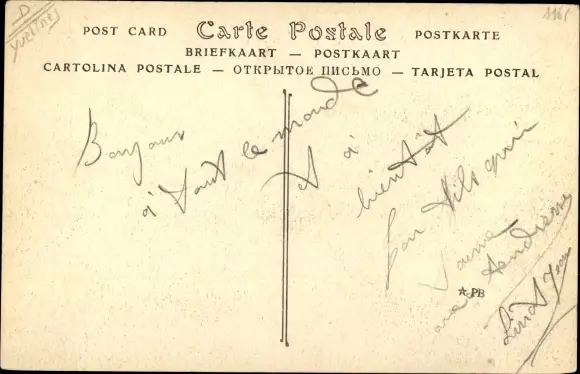 D
Yvelines
1161
POST CARD Carte Postale POSTKARTE
BRIEFKAART — POSTKAART
CARTOLINA POSTALE — ОТКРЫТОЕ ПИСЬМО — TARJETA POSTAL
Bonjour
à tout le monde
à
bientôt
ton fils qui
t'aime
avec tendresse
★ PB